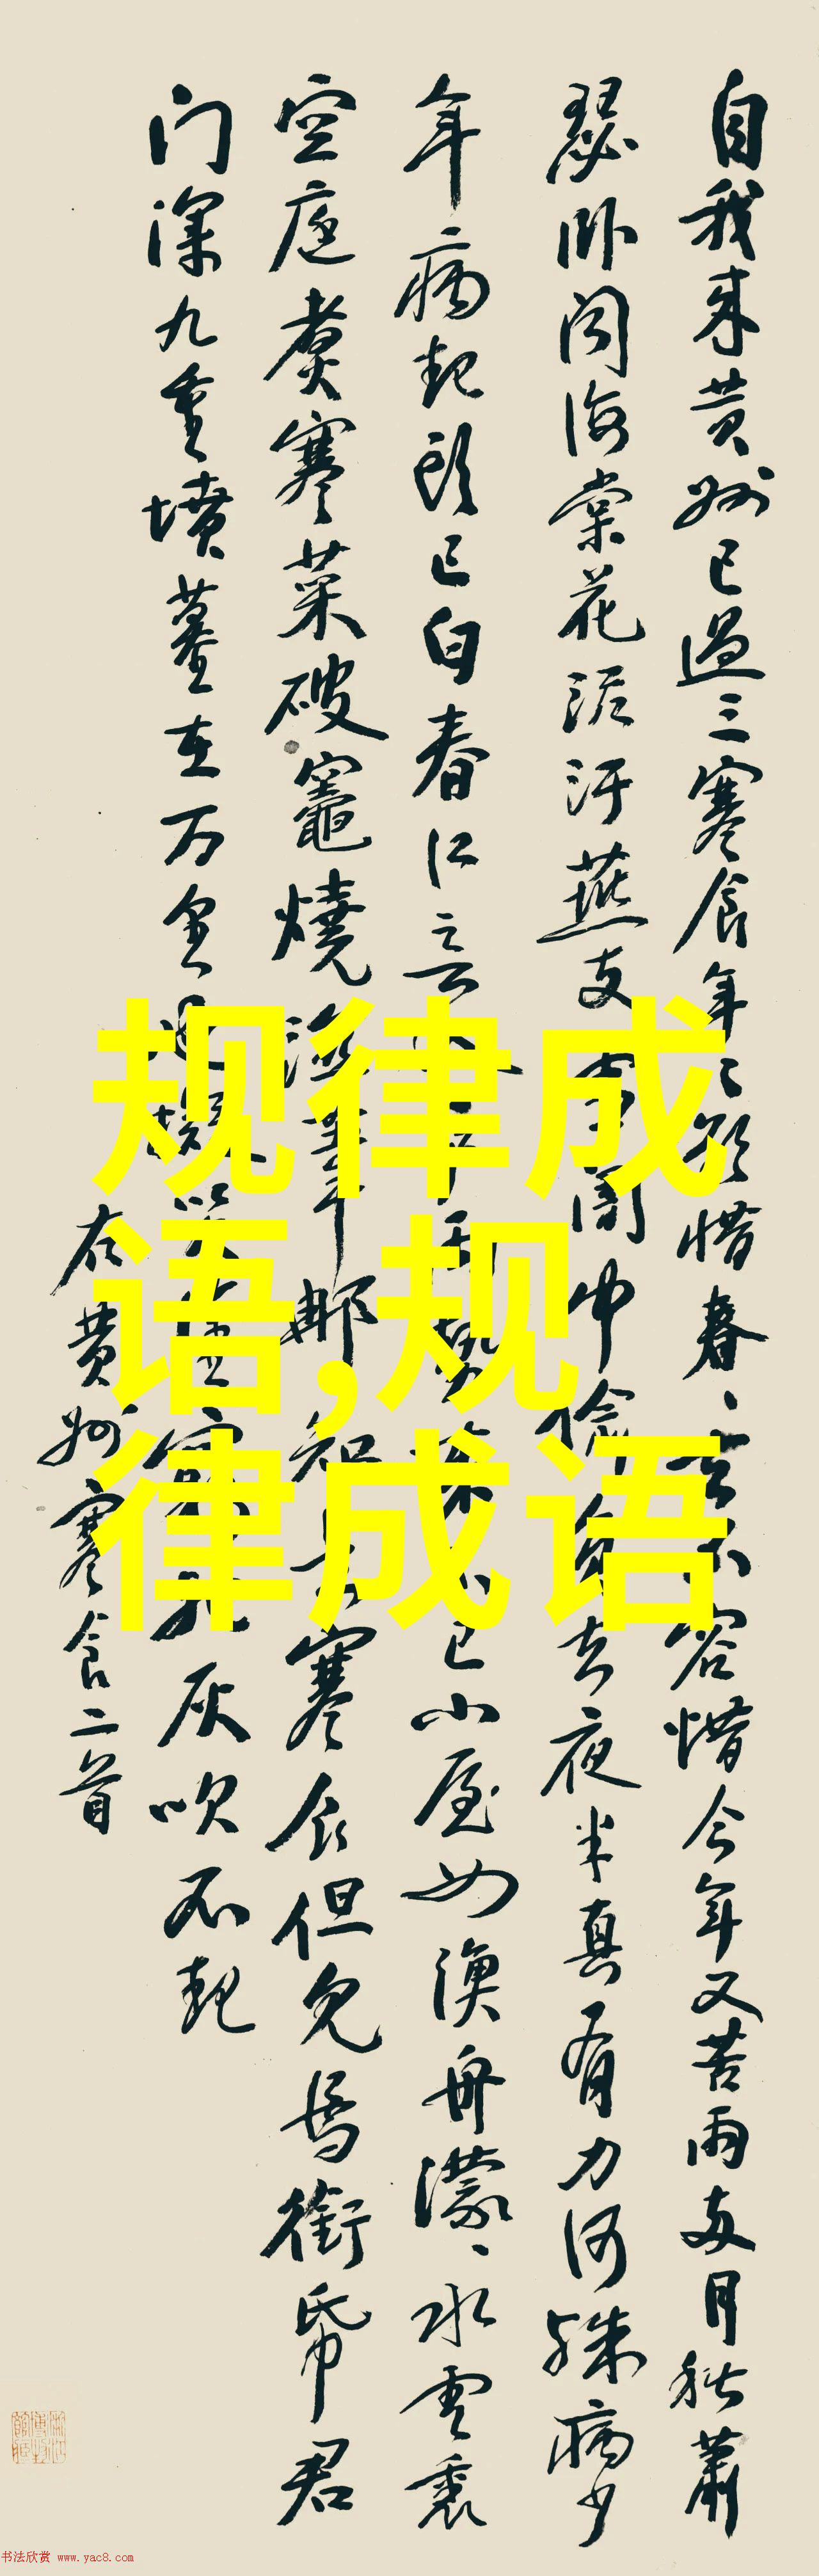 自我来黄州已過三寒食年々欲惜春々去不容惜今年又苦雨两月秋蕭
瑟卧闻海棠花泥汙燕支雪闇中偷負去夜半真有力何殊病少
年病起頭已白春江入户雨勢来不已小屋如漁舟濛々水雲裏
空庖煮寒菜破竈燒溼葦那知是寒食但見烏銜帋君
门深九重墳墓在万里也擬哭塗窮死灰吹不起
右黄州寒食二首
规律成
语,规
律成语
书法欣赏 www.yac8.com